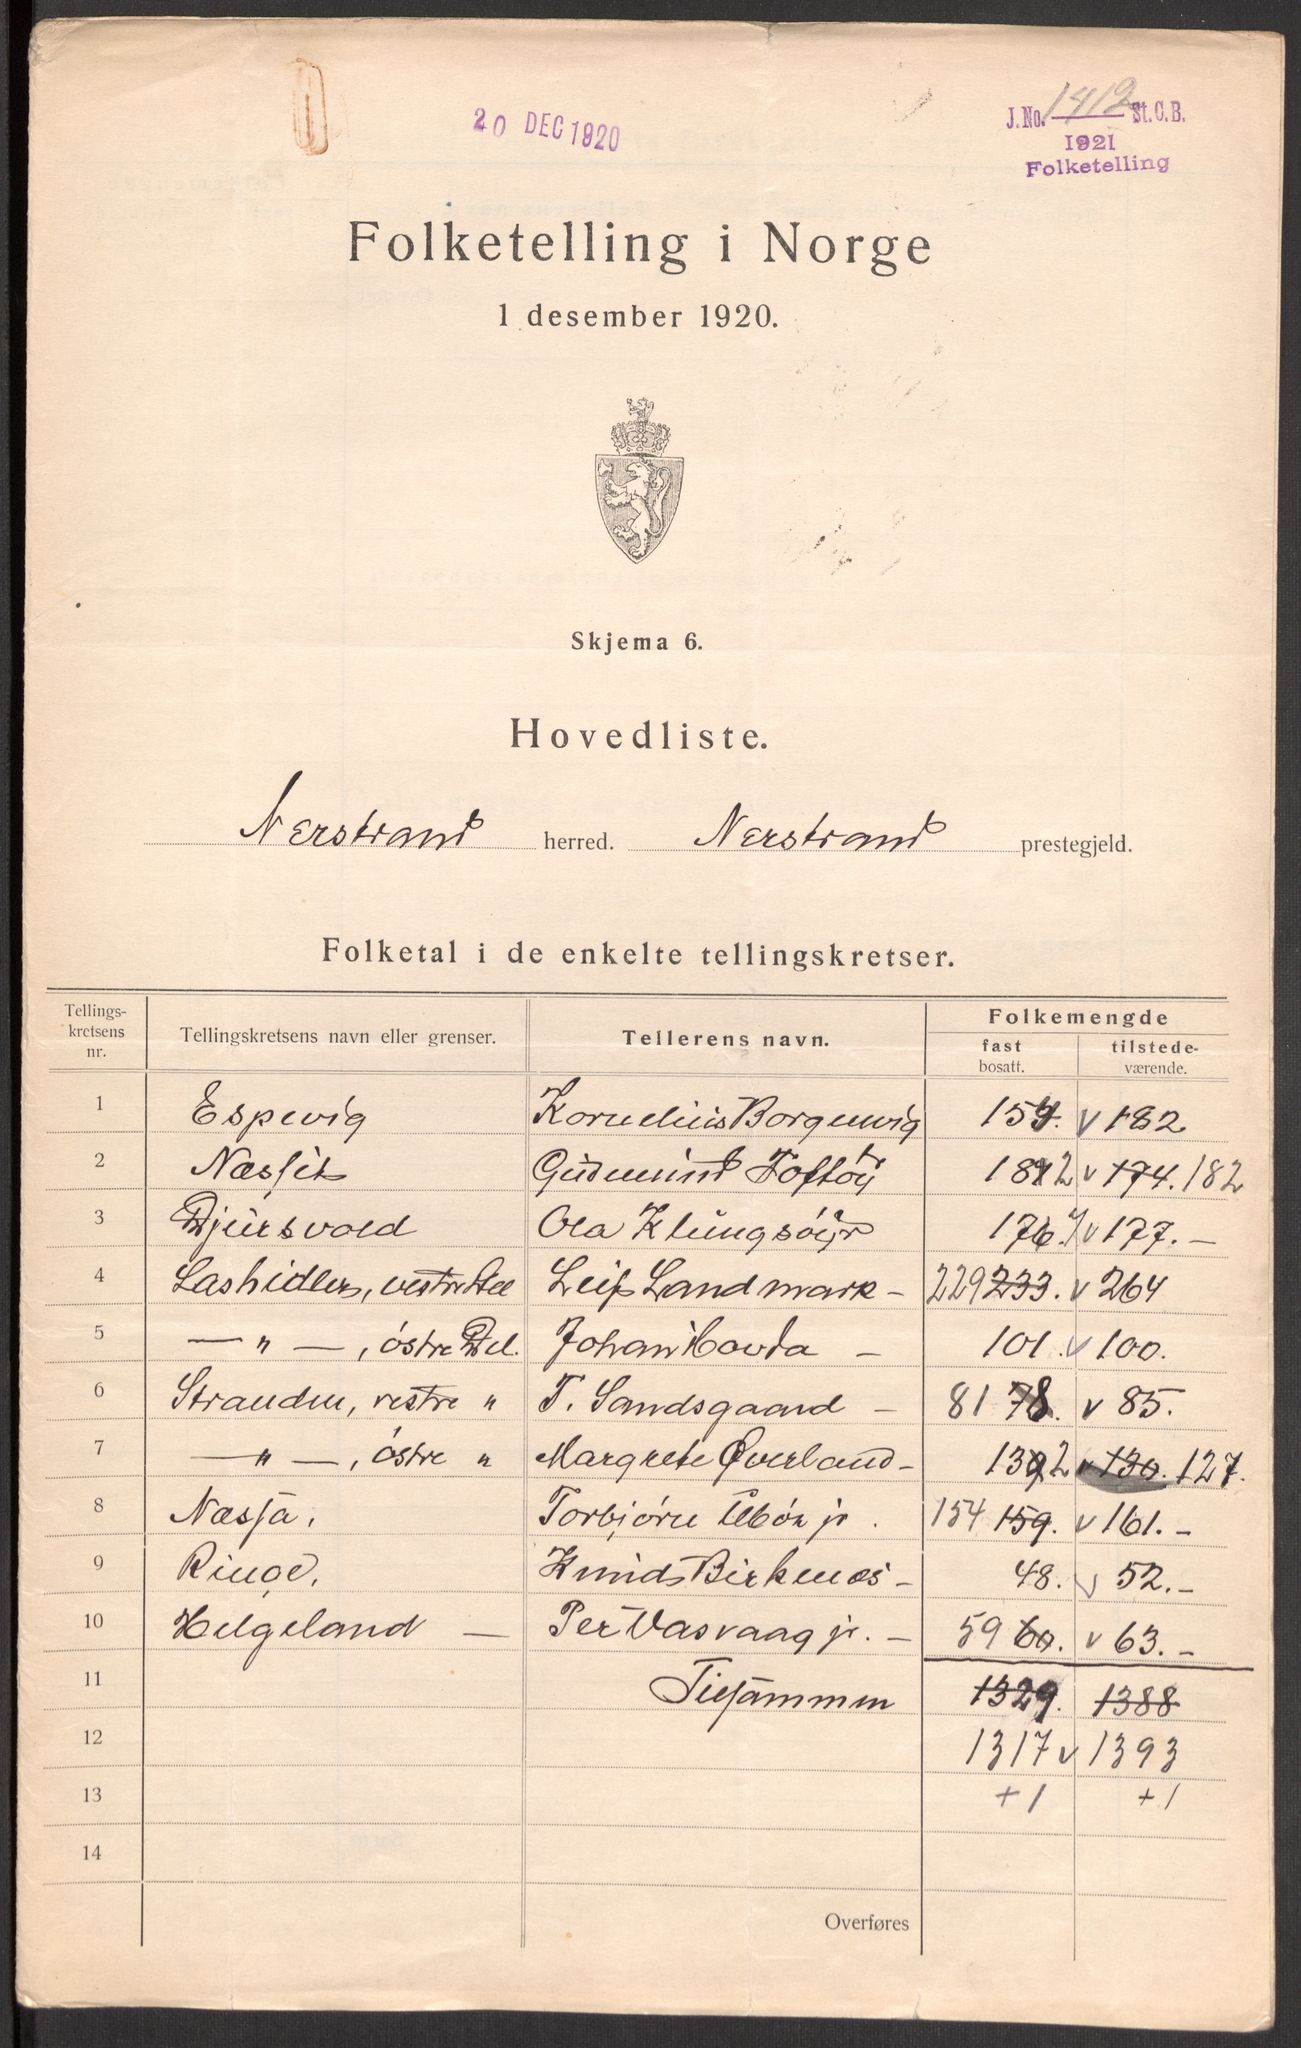 20 DEC 1920
J.No. 1412 St.C.B.
1921
Folketelling
Folketelling i Norge
1 desember 1920.
Skjema 6.
Hovedliste.
Nerstrand herred. Nerstrand prestegjeld.
Folketal i de enkelte tellingskretser.
Tellings-
kretsens
nr.
Tellingskretsens navn eller grenser.
Tellerens navn.
Folkemengde
fast
bosatt.
tilstede-
værende.
1 Espevig Kornelius Borgenvig v 182
2 Gudmund Toftøy v 174. 182
3 Djursvold Ola Klungsöyr v 177. —
4 vestre Del Leif Landmark — 229 233. v 264
5 — „ — , östre Del. Johan Hovda — 101. v 100.
6 Stranden, vestre „ T. Sandsgaard — 81 78. v 85.
7 — „ — , östre „ Margrete Øverland — v 130. 127.
8 Næsja. Torbjörn jr. 154 159. v 161. —
9 Ringe. Knud Birkenæs — 48. v 52. —
10 Helgeland — Per Vasvaag jr. — 59 60. v 63. —
11 Tilsammen 1329. 1388
12 1317 v 1393
13 +1 +1
14
Overføres